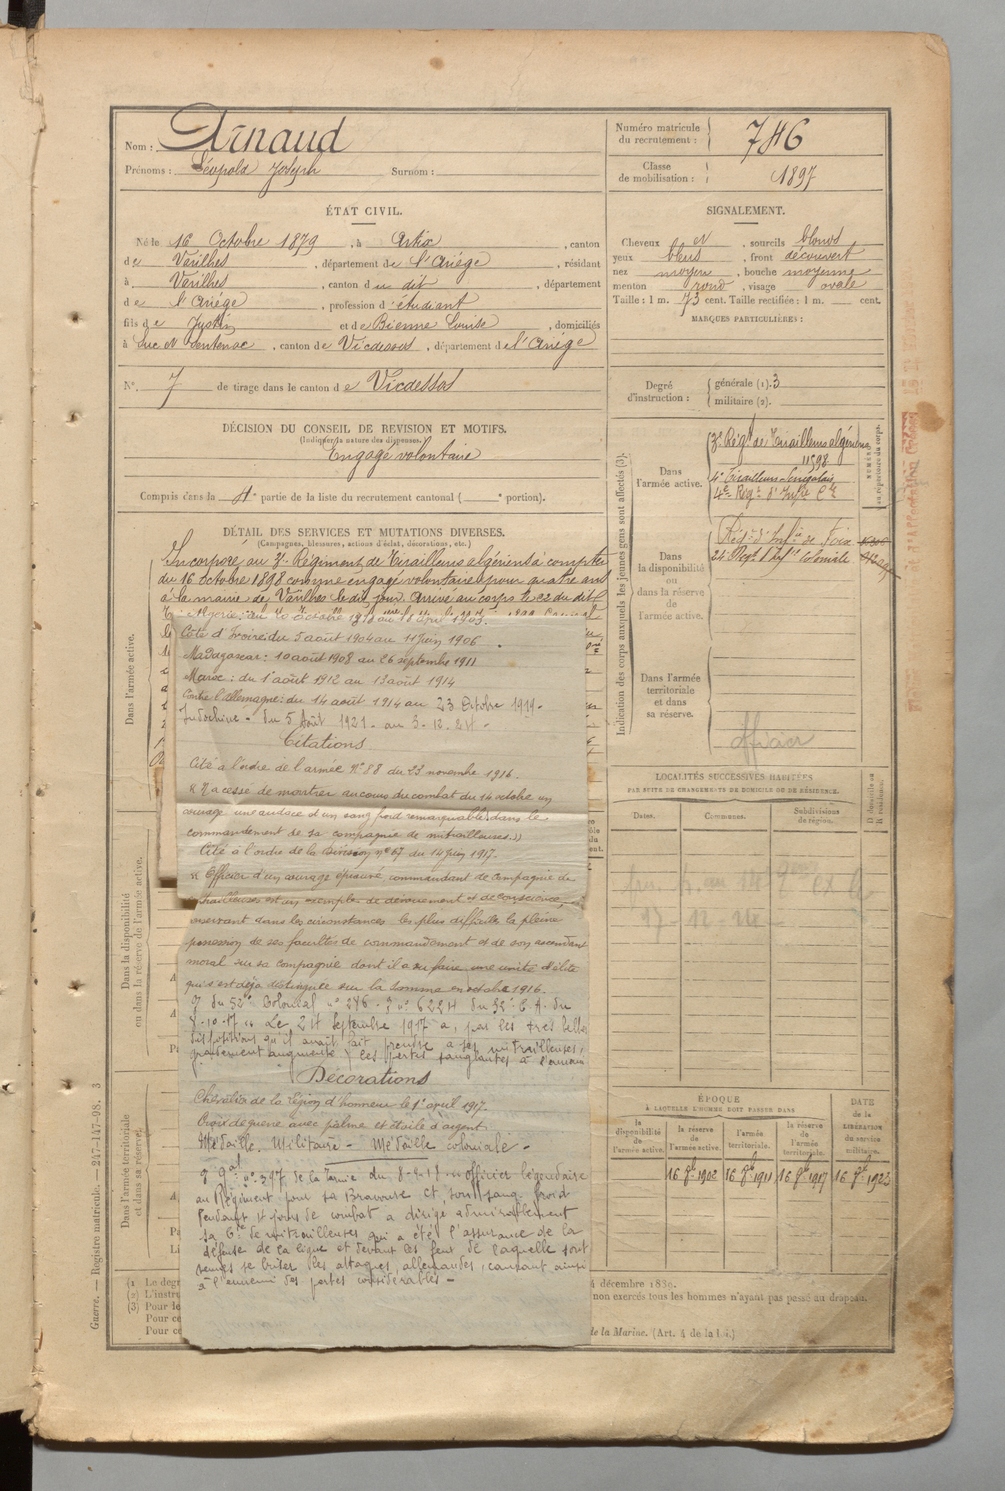 Nom : Arnaud
Prénoms : Léopold Joseph Surnom :
Numéro matricule
du recrutement : 746
Classe
de mobilisation : 1897
ÉTAT CIVIL.
Né le 16 Octobre 1879, à Artix, canton
de Varilhes, département de l'Ariége, résidant
à Varilhes, canton du dit, département
de l'Ariége, profession d'étudiant
fils de Justin et de Bienne Louise, domiciliés
à Suc et Sentenac, canton de Vicdessos, département de l'Ariége
N° 7 de tirage dans le canton de Vicdessos
SIGNALEMENT.
Cheveux et, sourcils blonds
yeux bleus, front découvert
nez moyen, bouche moyenne
menton rond, visage ovale
Taille : 1 m. 73 cent. Taille rectifiée : 1 m. cent.
MARQUES PARTICULIÈRES :
Degré
d'instruction :
générale (1). 3
militaire (2).
DÉCISION DU CONSEIL DE REVISION ET MOTIFS.
(Indiquer la nature des dispenses.)
Engagé volontaire
Compris dans la 4e partie de la liste du recrutement cantonal ( e portion).
DÉTAIL DES SERVICES ET MUTATIONS DIVERSES.
(Campagnes, blessures, actions d'éclat, décorations, etc.)
Incorporé au 3e Régiment de Tirailleurs algériens à compter
du 16 octobre 1898 comme engagé volontaire pour quatre ans
à la mairie de Varilhes le dit jour. Arrivé au corps le 22 du dit
Côte d'Ivoire: du 5 août 1904 au 11 juin 1906
Madagascar : 10 août 1908 au 26 septembre 1911
Maroc : du 1 août 1912 au 13 août 1914
Contre l'Allemagne: du 14 août 1914 au 23 Octobre 1919.
Indochine - du 5 Août 1921 - au 3-12.24 -
Citations
Cité à l'ordre de l'armée N° 88 du 23 novembre 1916.
« N'a cessé de montrer au cours du combat du 14 octobre un
courage une audace et un sang froid remarquables dans le
commandement de sa compagnie de mitrailleuses.»
Cité à l'ordre de la Division n° 67 du 14 juin 1917.
« Officier d'un courage éprouvé commandant de Compagnie de
mitrailleuses est un exemple de dévouement et de conscience,
conservant dans les circonstances les plus difficiles la pleine
possession de ses facultés de commandement et de son ascendant
moral sur sa compagnie dont il a su faire une unité d'élite
qui s'est déjà distinguée sur la Somme en octobre 1916.
du 52e Colonial n° 276 - n° 6224 du 32e C.A. du
8-10-17 « Le 24 Septembre 1917 a, par les très belles
dispositions qu'il avait fait prendre à ses mitrailleuses,
puissamment augmenté les pertes sanglantes à l'ennemi
Décorations
Chevalier de la Légion d'honneur le 1er avril 1917.
Croix de guerre avec palme et étoile d'argent.
Médaille Militaire - Médaille coloniale -
n° 397 de la du 8-2-18 « officier légendaire
au Régiment pour sa Bravoure et son sang froid
Pendant 4 jours de combat a dirigé admirablement
sa Cie de mitrailleuses qui a été l'assurance de la
défense de la ligne et devant les feux de laquelle sont
venues se briser les attaques allemandes, causant ainsi
à l'ennemi des pertes considérables -
Dans l'armée active.
Dans la disponibilité
ou dans la réserve de l'armée active.
Dans l'armée territoriale
et dans sa réserve.
Indication des corps auxquels les jeunes gens sont affectés (3).
Dans
l'armée active.
3e Régt de Tirailleurs algériens
11598
4e Tirailleurs Sénégalais
4e Régt d'Infie Cle
NUMÉROS
au répertoire du corps.
Dans
la disponibilité
ou
dans la réserve
de
l'armée active.
Régt d'Infie de Foix
24e Régt d'Infie Coloniale
Dans l'armée
territoriale
et dans
sa réserve.
officier
LOCALITÉS SUCCESSIVES HABITÉES
PAR SUITE DE CHANGEMENTS DE DOMICILE OU DE RÉSIDENCE.
Dates.
Communes.
Subdivisions
de région.
D domicile ou
R résidence.
17-12-24 -
ÉPOQUE
À LAQUELLE L'HOMME DOIT PASSER DANS
DATE
de la
LIBÉRATION
du service
militaire.
la
disponibilité
de
l'armée active.
la réserve
de
l'armée active.
l'armée
territoriale.
la réserve
de
l'armée
territoriale.
16 8bre 1902
16 8bre 1911
16 8bre 1917
16 8bre 1923
(1) Le degr
(2) L'instru
(3) Pour le
Pour ce
Pour ce
4 décembre 1830.
non exercés tous les hommes n'ayant pas passé au drapeau.
de la Marine. (Art. 4 de la loi.)
Guerre. — Registre matricule. — 247-147-98. 3